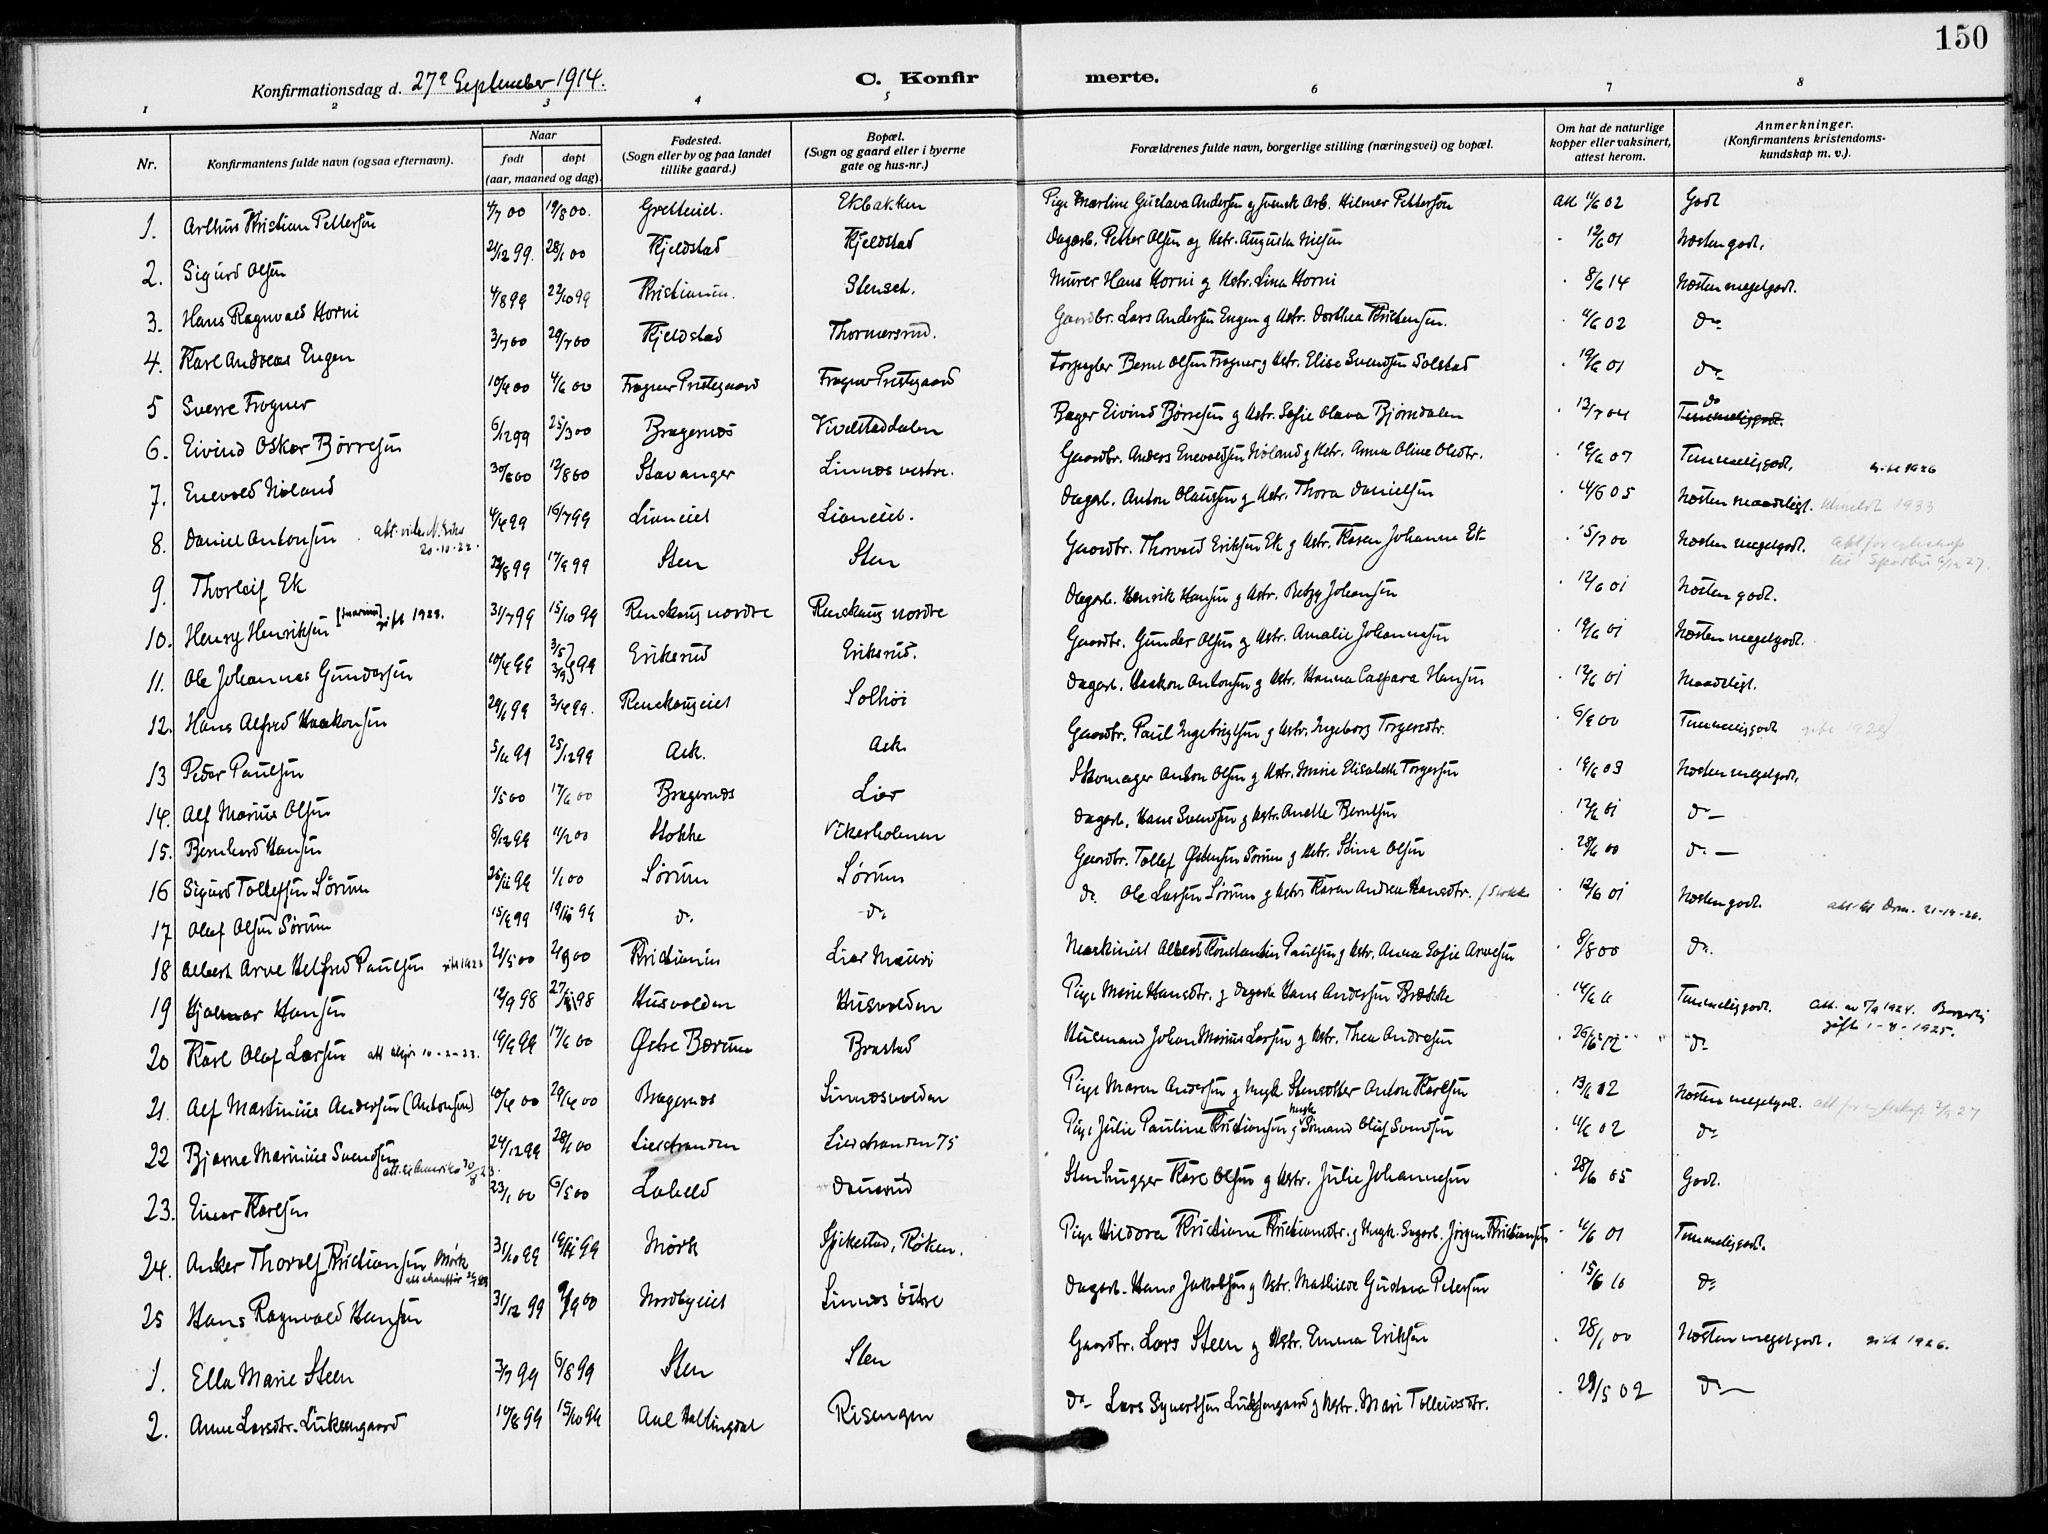 150
Konfirmationsdag d. 27de September 1914. C. Konfir merte.
1 2 3 4 5 6 7 8
Nr. Konfirmantens fulde navn (ogsaa efternavn). Naar født døpt (aar, maaned og dag). Fødested. (Sogn eller by og paa landet tillike gaard.) Bopæl. (Sogn og gaard eller i byerne gate og hus-nr.) Forældrenes fulde navn, borgerlige stilling (næringsvei) og bopæl. Om hat de naturlige kopper eller vaksinert, attest herom. Anmerkninger. (Konfirmantens kristendomskundskap m. v.).
1. Arthur Kristian Pettersen 4/7 00 19/8 00. Gretteeiet. Ekbakken Pige Martine Gustava Andersen og svensk Arb. Hilmer Pettersen Att 4/6 02 Godt
2. Sigurd Olsen 21/12 99. 28/1 00 Kjeldstad Kjeldstad Dagarb. Petter Olsen og Hstr. Augusta Nilsen 12/6 01 Næsten godt.
3. Hans Ragnvald Horni 4/8 99 22/10 99 Kristiania. Stenset. Murer Hans Horni og Hstr. Lina Horni 8/6 14 Næsten megetgodt.
4. Karl Andreas Engen 3/7 00 29/7 00 Kjeldstad Thormersrud. Gaardbr. Lars Andersen Engen og Hstr. Dorthea Kristensen. 4/6 02 Do
5 Sverre Frogner 10/4 00 4/6 00 Frogner Prestegaard Frogner Prestegaard Forpagter Bernt Olsen Frogner og Hstr. Elise Svendsen Solstad 19/6 01 Do
6. Eivind Oskar Børresen 6/12 99 25/3 00 Bragernæs Vivelstaddalen Bager Eivind Børresen og Hstr. Sofie Olava Bjørndalen 13/7 04 Temmeliggodt. Do
7. Enevold Høland 30/6 00 12/8 00 Stavanger Linnæs vestre. Gaardbr. Anders Enevoldsen Høland og Hstr. Anna Oline Olsdtr. 19/6 07 Temmeliggodt. gift 1926
8. Daniel Antonsen 4/4 99 16/7 99 Lianeiet Lianeiet. Dagarb. Anton Olausen og Hstr. Thora Danielsen 14/6 05 Næsten maadeligt. Utmeldt 1933
20-10-22.
9. Thorleif Ek 22/8 99 17/9 99 Sten Sten Gaardbr. Thorvald Eriksen Ek og Hstr. Karen Johanne Ek 15/7 00 Næsten megetgodt.
10. Henry Henriksen gift 1928. 31/7 99 15/10 99 Renskaug nordre Renskaug nordre Dagarb. Henrik Hansen og Hstr. Betzy Johansen 12/6 01 Næsten godt.
11. Ole Johannes Gundersen 10/4 99 Eriksrud Eriksrud. Gaardbr. Gunder Olsen og Hstr. Amalie Johannesen 19/6 01 Næsten megetgodt.
12. Hans Alfred Haakonsen Renskaugeiet Solhøi Dagarb. Haakon Antonsen og Hstr. Hanna Caspara Hansen 12/6 01 Maadeligt.
13 Peder Paulsen 25/12 99 Ask. Ask. Gaardbr. Paul Ingebrigtsen og Hstr. Ingeborg Torgersdtr. 6/9 00 Temmeliggodt
14. Alf Marius Olsen 1/5 00 17/6 00 Bragernæs Lier Skomager Anton Olsen og Hstr. Marie Elisabeth Torgersen 19/6 03 Næsten megetgodt.
15. Bernhard Hansen 8/12 99 11/2 00 Stokke Vikerholmen Dagarb. Hans Svendsen og Hstr. Anette Berntsen 12/6 01 Do
16 Sigurd Tollefsen Sørum 26/11 99 1/1 00 Sørum Sørum Gaardbr. Tollef Østensen Sørum og Hstr. Stina Olsen 28/6 00 Do
17 Olaf Olsen Sørum 15/9 99 Do. Do. Do. Ole Larsen Sørum og Hstr Karen Andrea Hansdtr. / Stokke 12/6 01 Næsten godt.
18 Albert Arve Helfred Paulsen gift 1923 21/5 00 Kristiania Lier Mæieri Maskinist Albert Konstantin Paulsen og Hstr. Anna Sofie Arvesen 8/8 00 Do.
19 Hjalmar Hansen 12/9 98 Husvolden Husvolden Pige Marie Hansdtr. og Dagarb Hans Andersen Brække Temmeliggodt. gift 1-8-1925.
20 Karl Olaf Larsen 10-2-23. 19/9 99 17/6 00 Østre Bærum Brastad Husmand Johan Marius Larsen og Hstr. Thea Andresen 26/6 12 Do
21. Alf Martinius Andersen (Antonsen) 10/4 00 29/4 00 Bragernæs Linnæsvolden Pige Maren Andersen og Ungk Stenarbeider Anton Karlsen 13/6 12 Næsten megetgodt.
22 Bjarne Marinius Svendsen 24/12 99 28/1 00 Lierstranden Lierstranden 75 Pige Julie Pauline Kristiansen og ungk Sømand Oluf Svendsen 4/6 02 Do
23. Einar Karlsen 23/1 00 6/5 00 Labell Dauerud Stenhugger Karl Olsen og Hstr. Julie Johannesen 28/6 05 Godt.
24. Anker Thorolf Kristiansen Mørk 31/10 99 Mørk Spikestad, Røken. Pige Hildora Kristiane Kristiansdtr. og Ungk. Sagarb. Jørgen Kristiansen 4/6 01 Temmeliggodt.
25 Hans Ragnvald Hansen 31/12 99 Nordbyeiet Linnæs østre Dagarb. Hans Jakobsen og Hstr. Mathilde Gustava Petersen 15/6 10 Do
1. Ella Marie Steen 3/7 99 6/8 99 Sten Sten Gaardbr. Lars Steen og Hstr. Emma Eriksen 28/1 00 Næsten megetgodt. gift 1926.
2. Anne Larsdtr. Luksengaard 10/8 99 15/10 99 Aal Hallingdal Risengen Do Lars Syvertsen Luksengaard og Hstr. Mari Tolleivsdtr. 29/5 02 Do